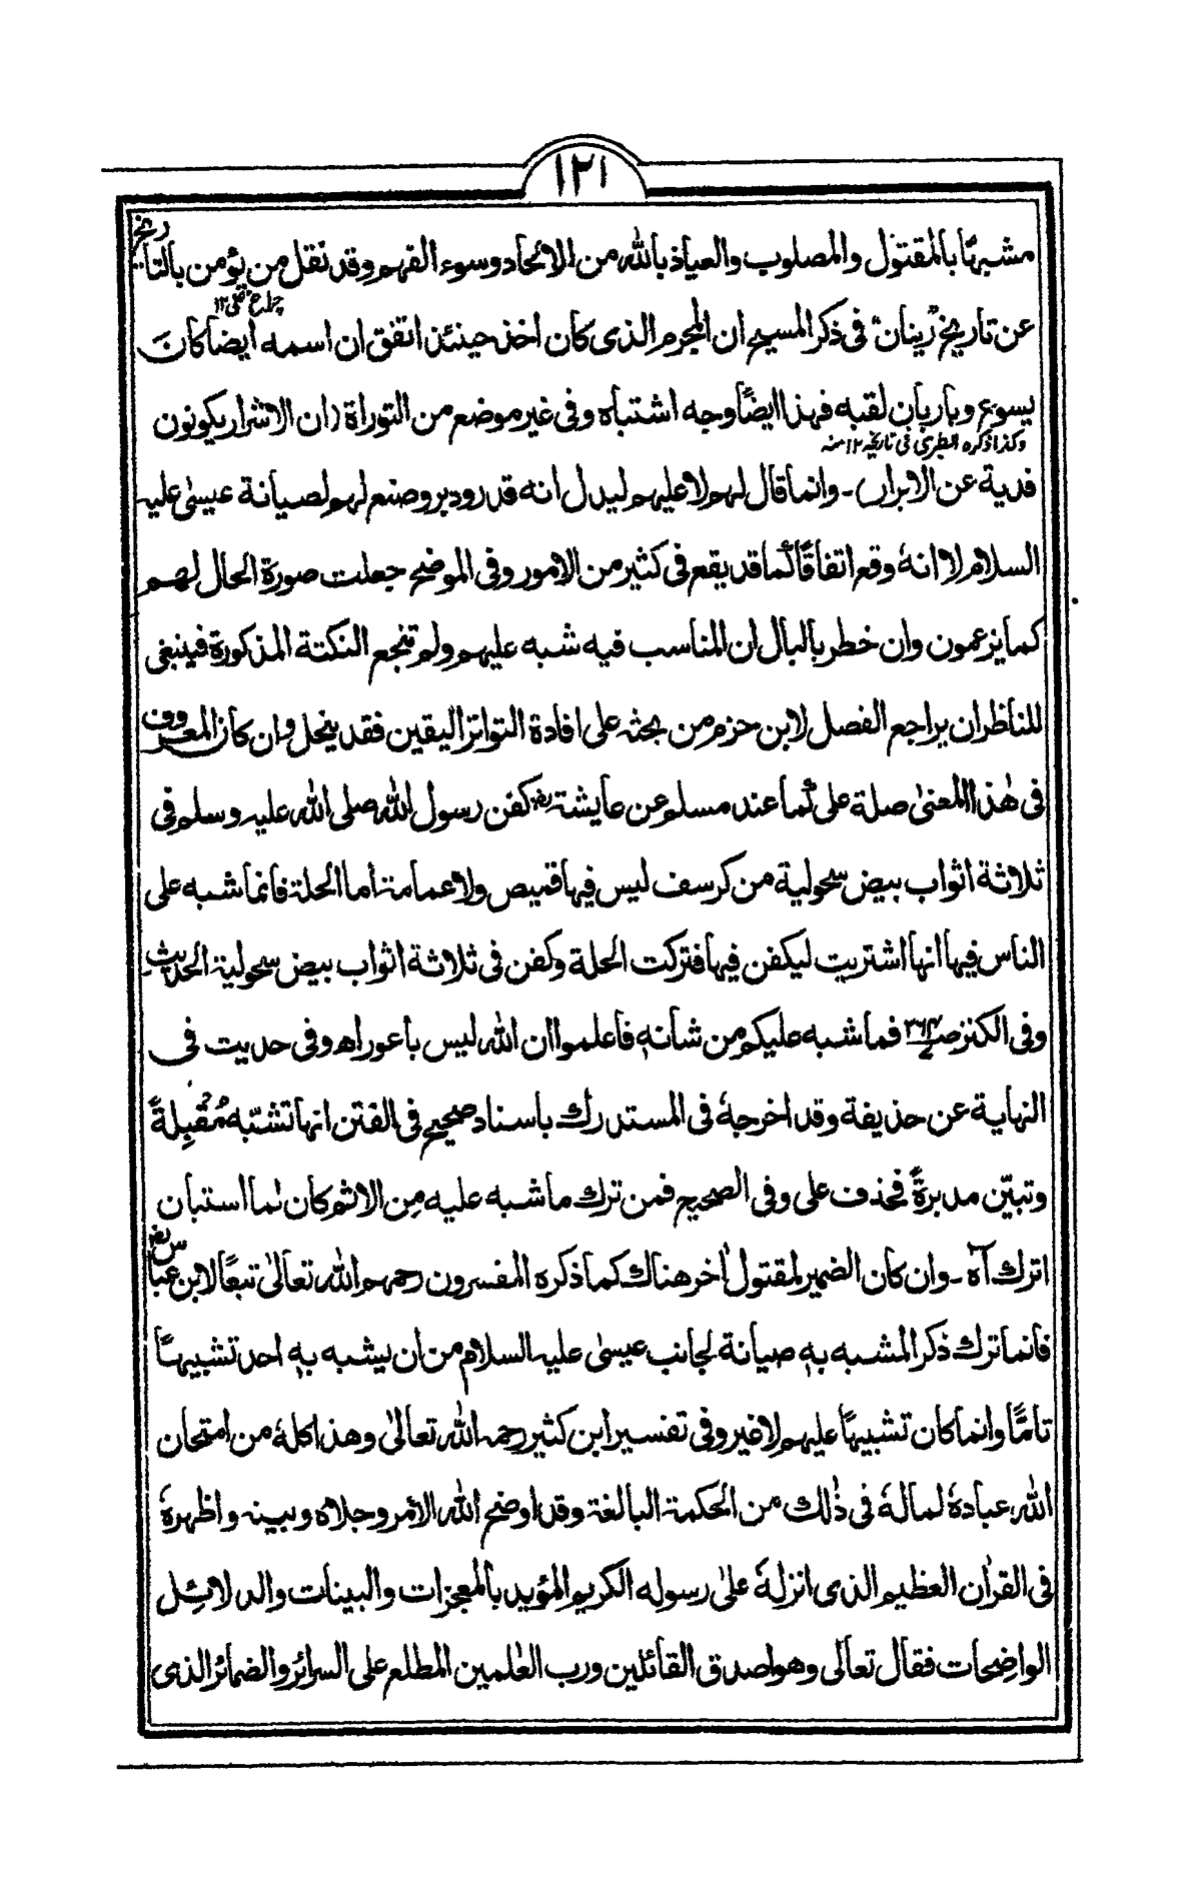 ١٢١
مشبهًا بالمقتول والمصلوب والعياذ بالله من الالحاد وسوء الفهم وقد نقل من يؤمن بالتاريخ
عن تاريخ رينان في ذكر المسيح ان المجرم الذى كان اخذ حينئذ اتفق ان اسمه ايضا كان
يسوع وباربان لقبه فهذا ايضًا وجه اشتباه وفى غير موضع من التوراة (ان الاشرار يكونون
وكذا ذكره الطبرى فى تاريخه ١٢ منه
فدية عن الابرار) ـ وانما قال لهم لا عليهم ليدل انه قد رود بر وصنع لهم لصيانة عيسىٰ عليه
السلام لا انهٗ وقع اتفاقًا كما قد يقع فى كثير من الامور وفى الموضح جعلت صورة الحال لهم
كما يزعمون وان خطر بالبال ان المناسب فيه شبه عليهم ولم تنجع النكتة المذكورة فينبغى
للناظر ان يراجع الفصل لابن حزم من بحثه على افادة التواتر اليقين فقد ينحل وان كان المعروف
فى هٰذا المعنىٰ صلة على كما عند مسلم عن عايشةرض كفن رسول الله صلى الله عليه وسلم فى
ثلاثة اثواب بيض سحولية من كرسف ليس فيها قميص ولا عمامة أما الحلة فانما شبه على
الناس فيها انها اشتريت ليكفن فيها فتركت الحلة وكفن فى ثلاثة اثواب بيض سحولية الحديث
وفى الكنز فما شبه عليكم من شأنه فاعلموا ان الله ليس باعور اه وفى حديث فى
النهاية عن حذيفة وقد اخرجهٗ فى المستدرك باسناد صحيح فى الفتن انها تشبّه مُقبِلةً
وتبيّن مدبرةً فحذف على وفى الصحيح فمن ترك ما شبه عليه مِن الاثم كان لما استبان
اترك آه ـ وان كان الضمير لمقتول اٰخر هناك كما ذكره المفسرون رحمهم الله تعالىٰ تبعًا لابن عباسرض
فانما ترك ذكر المشبه به صيانة لجانب عيسىٰ عليه السلام من ان يشبه به احد تشبيهًا
تامًّا وانما كان تشبيهًا عليهم لا غير وفى تفسير ابن كثير رحمه الله تعالىٰ وهذا كلهٗ من امتحان
الله عبادهٗ لما لهٗ فى ذٰلك من الحكمة البالغة وقد اوضح الله الأمر وجلاه وبينه واظهرهٗ
فى القراٰن العظيم الذى انزلهٗ علىٰ رسوله الكريم المؤيد بالمعجزات والبينات والدلائل
الواضحات فقال تعالى وهو اصدق القائلين ورب العٰلمين المطلع على السرائر والضمائر الذى